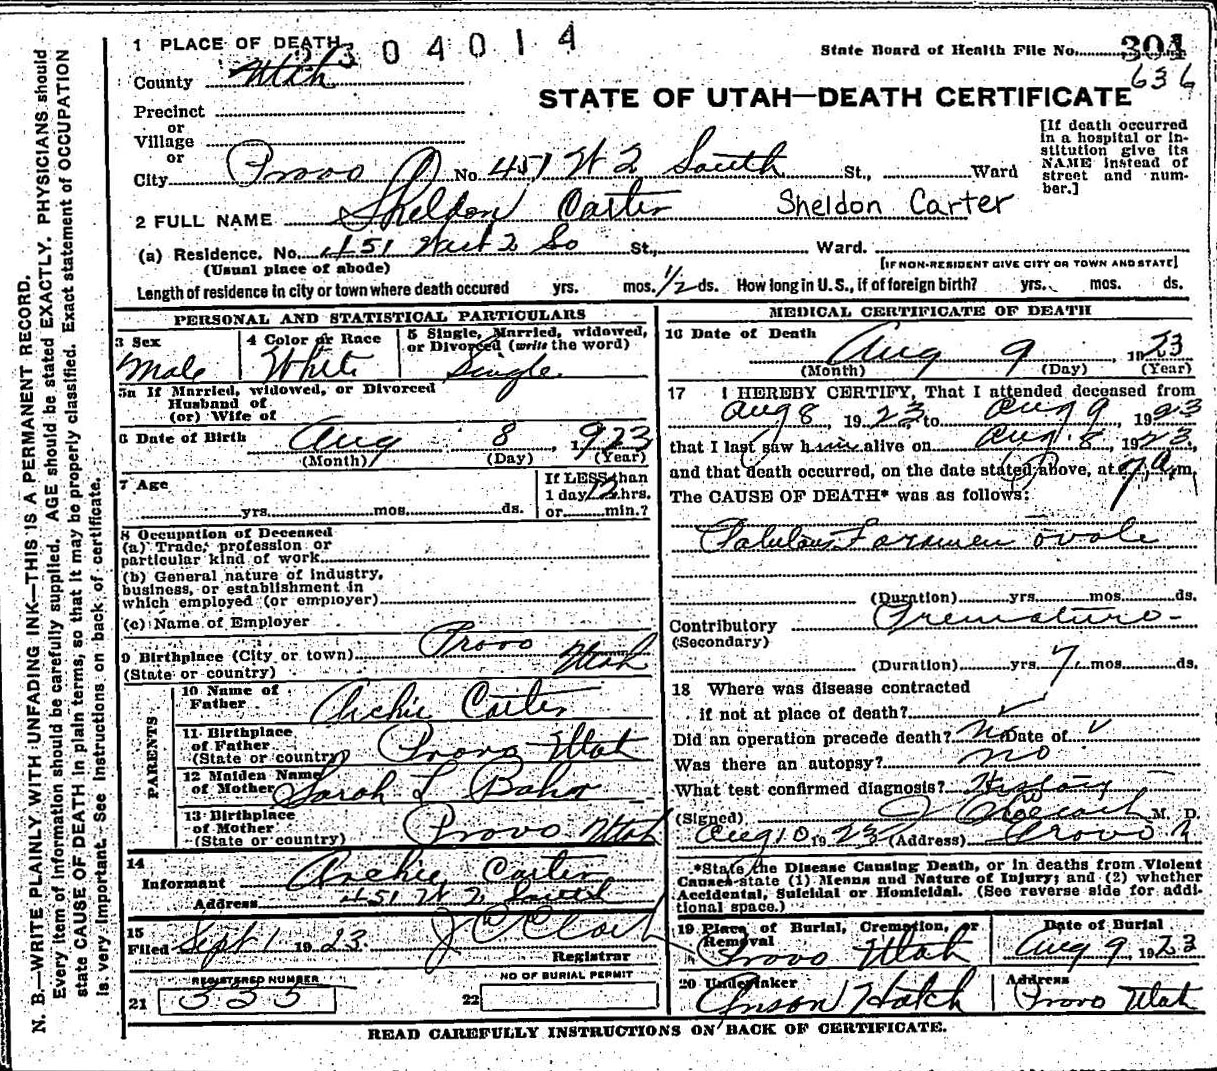 1 PLACE OF DEATH 2304014
State Board of Health File No. 301
636
County Utah
STATE OF UTAH—DEATH CERTIFICATE
Precinct
or
Village
or
City Provo No. 451 W 2 South St., Ward
[If death occurred in a hospital or institution give its NAME instead of street and number.]
2 FULL NAME Sheldon Carter Sheldon Carter
(a) Residence. No. 451 West 2 So St., Ward.
(Usual place of abode) [IF NON-RESIDENT GIVE CITY OR TOWN AND STATE]
Length of residence in city or town where death occured yrs. mos. 1/2 ds. How long in U.S., if of foreign birth? yrs. mos. ds.
PERSONAL AND STATISTICAL PARTICULARS
3 Sex Male
4 Color or Race White
5 Single, Married, widowed, or Divorced (write the word) Single
5a If Married, widowed, or Divorced
Husband of
(or) Wife of
6 Date of Birth Aug 8, 1923
(Month) (Day) (Year)
7 Age yrs. mos. ds.
If LESS than
1 day 12 hrs.
or min.?
8 Occupation of Deceased
(a) Trade, profession or
particular kind of work
(b) General nature of industry,
business, or establishment in
which employed (or employer)
(c) Name of Employer
9 Birthplace (City or town) Provo
(State or country) Utah
PARENTS
10 Name of
Father Archie Carter
11 Birthplace
of Father Provo Utah
(State or country)
12 Maiden Name
of Mother Sarah L
13 Birthplace
of Mother Provo Utah
(State or country)
14
Informant Archie Carter
Address 451 W 2 South
15
Filed Sept 1 1923.
Registrar
REGISTERED NUMBER
21 335
NO OF BURIAL PERMIT
22
MEDICAL CERTIFICATE OF DEATH
16 Date of Death
Aug 9, 1923
(Month) (Day) (Year)
17 I HEREBY CERTIFY, That I attended deceased from
Aug 8, 1923 to Aug 9 1923
that I last saw him alive on Aug. 8, 1923,
and that death occurred, on the date stated above, at 9 a.m.
The CAUSE OF DEATH* was as follows:
Patulous Foramen ovale
(Duration) yrs. mos. ds.
Contributory Premature-
(Secondary)
(Duration) yrs. 7 mos. ds.
18 Where was disease contracted
if not at place of death?
Did an operation precede death? no Date of
Was there an autopsy? no
What test confirmed diagnosis? History
(Signed) M. D.
Aug 10 1923 (Address) Provo U
*State the Disease Causing Death, or in deaths from Violent
Causes state (1) Means and Nature of Injury; and (2) whether
Accidental, Suicidal or Homicidal. (See reverse side for additional space.)
19 Place of Burial, Cremation, or
Removal Provo Utah
Date of Burial
Aug 9, 1923
20 Undertaker
Anson Hatch
Address
Provo Utah
READ CAREFULLY INSTRUCTIONS ON BACK OF CERTIFICATE.
N. B.—WRITE PLAINLY WITH UNFADING INK—THIS IS A PERMANENT RECORD.
Every item of information should be carefully supplied. AGE should be stated EXACTLY. PHYSICIANS should
state CAUSE OF DEATH in plain terms, so that it may be properly classified. Exact statement of OCCUPATION
is very important. See instructions on back of certificate.